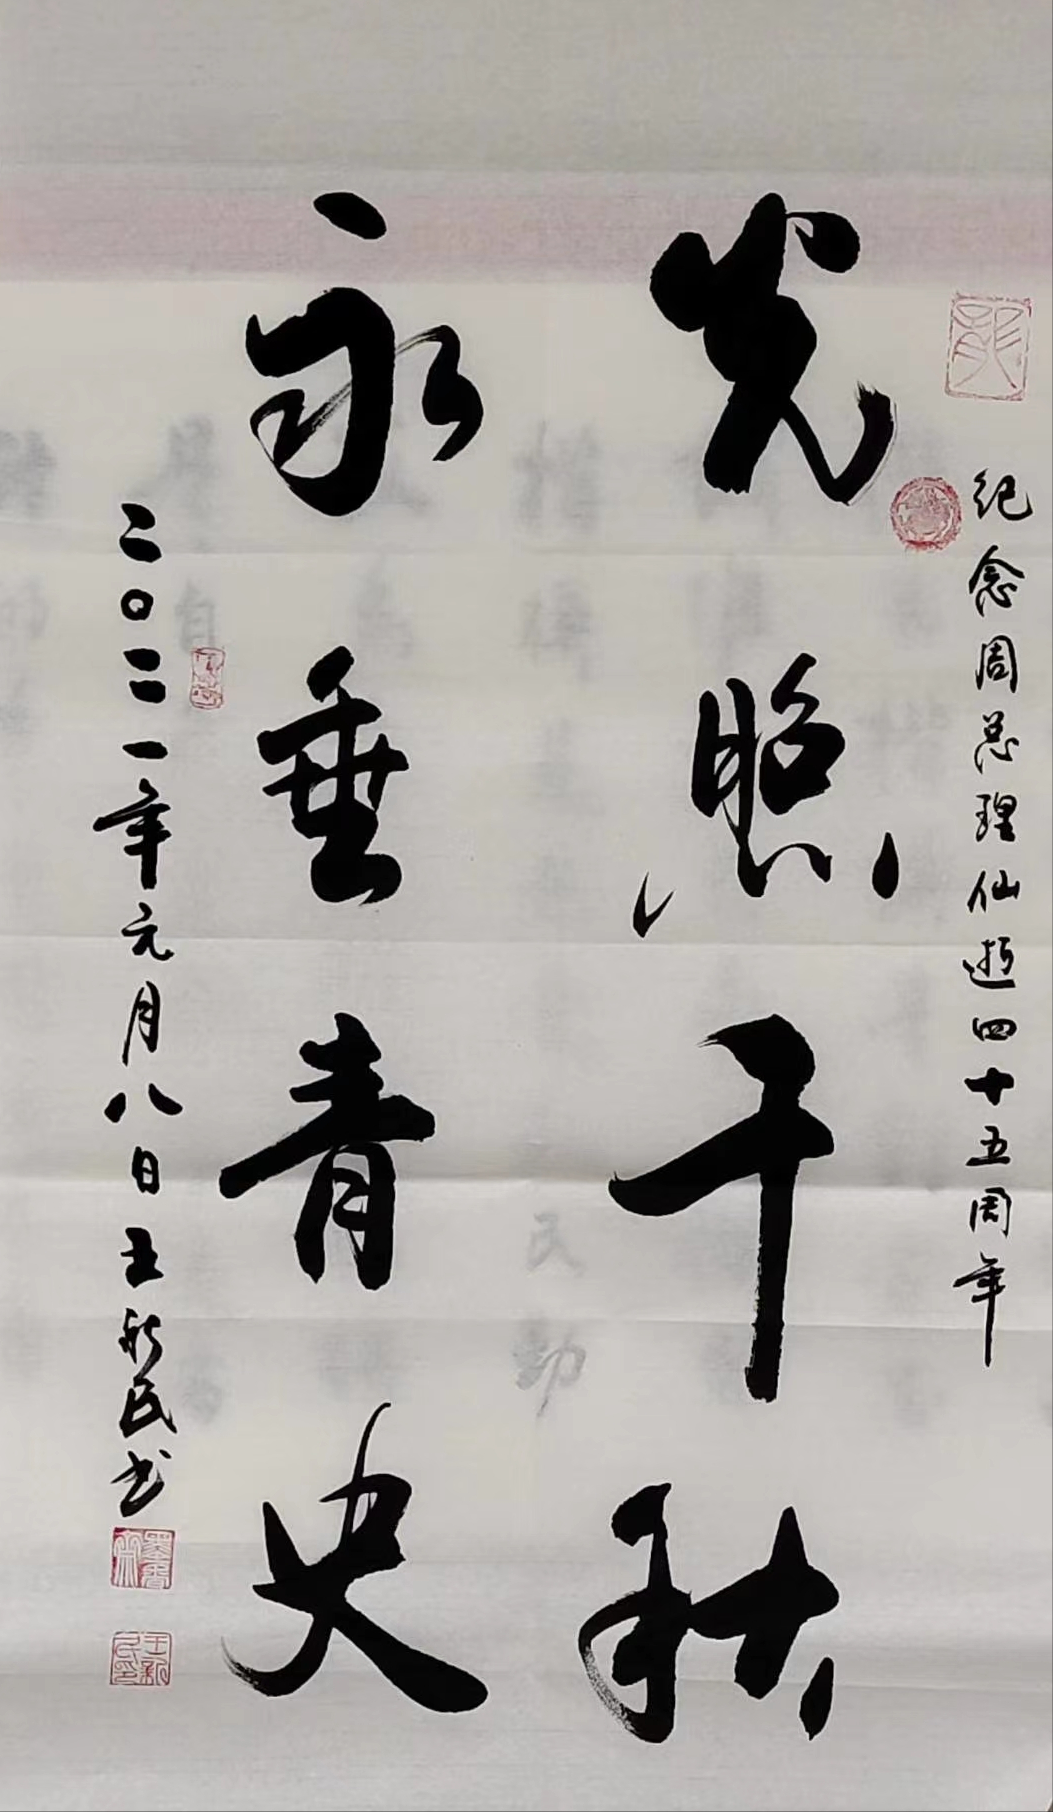 纪念周总理仙逝四十五周年
光照千秋
永垂青史
二〇二一年元月八日王新民书
王新民印